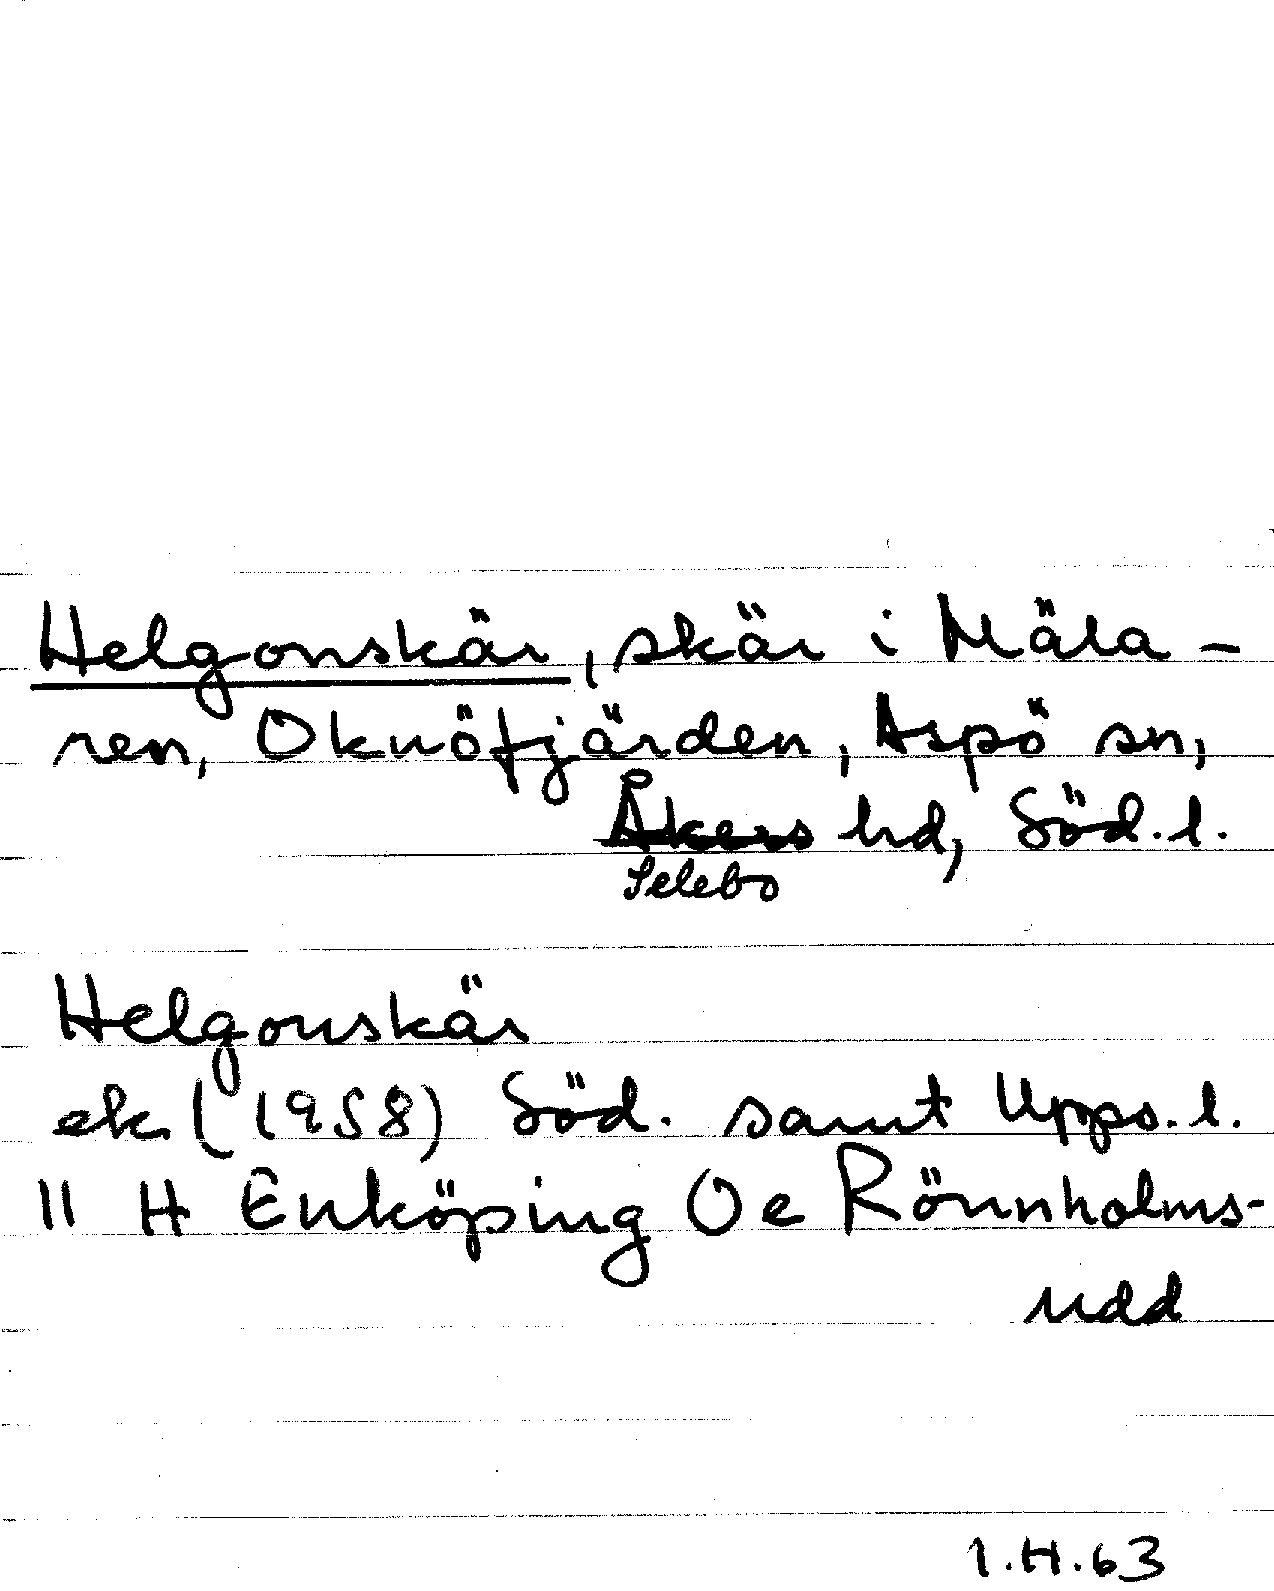 Helgonskär, skär i Mäla-
ren, Oknöfjärden, Aspö sn,
Åkers hd, Söd. l.
Selebo
Helgonskär
ek (1958) Söd. samt Upps. l.
11 H Enköping Oe Rönnholms-
udd
1.H.63